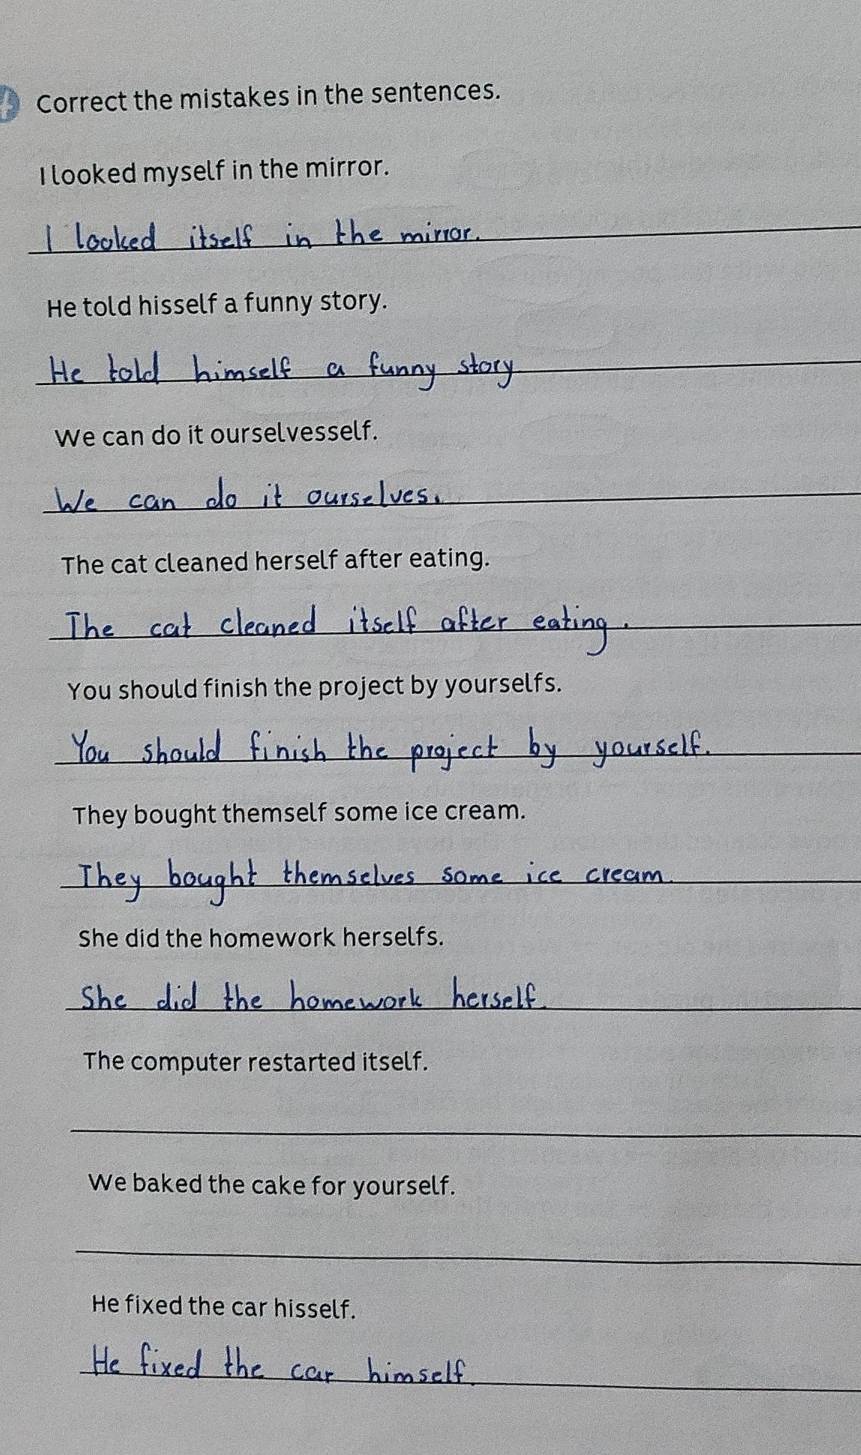 Correct the mistakes in the sentences.
I looked myself in the mirror.
I looked itself in the mirror.
He told hisself a funny story.
He told himself a funny story
We can do it ourselvesself.
We can do it ourselves.
The cat cleaned herself after eating.
The cat cleaned itself after eating.
You should finish the project by yourselfs.
You should finish the project by yourself.
They bought themself some ice cream.
They bought themselves some ice cream.
She did the homework herselfs.
She did the homework herself.
The computer restarted itself.
We baked the cake for yourself.
He fixed the car hisself.
He fixed the car himself.